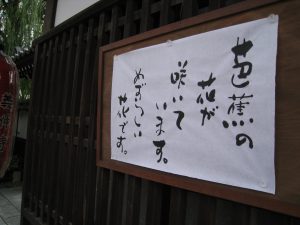 芭蕉の
花が
咲いて
います。
めずらしい
花です。